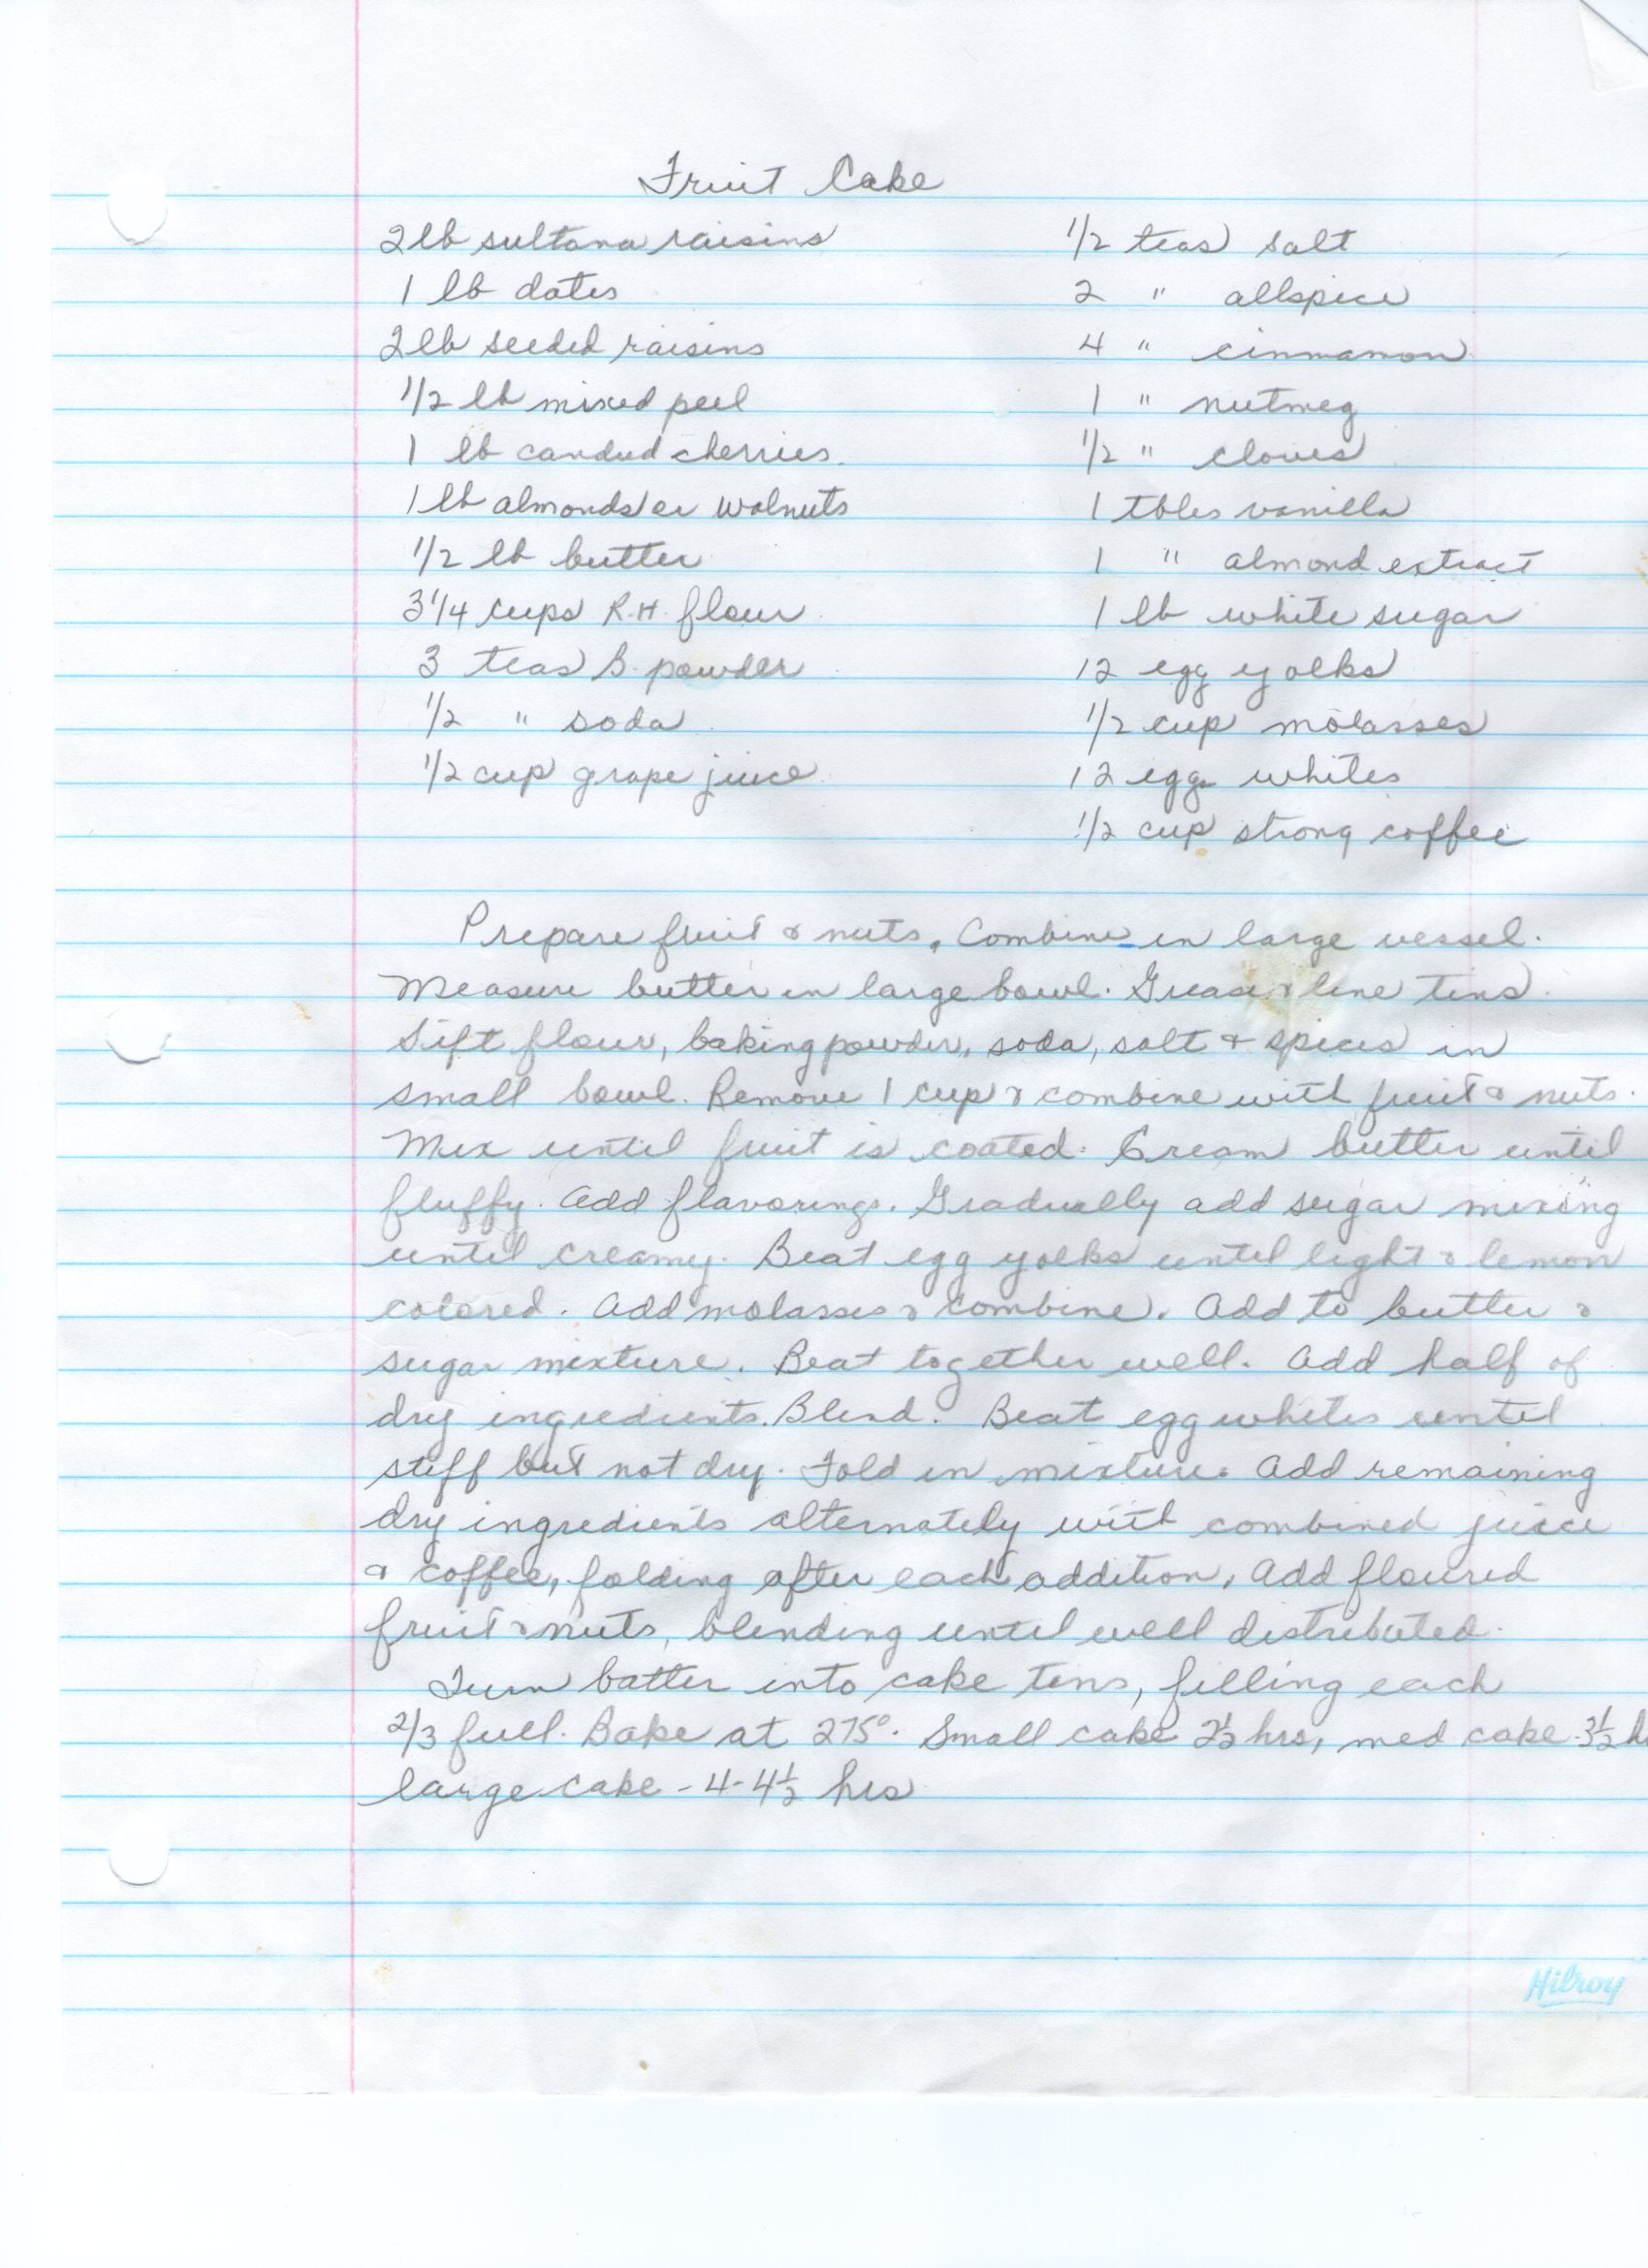 Fruit Cake
2 lb sultana raisins
1 lb dates
2 lb seeded raisins
1/2 lb mixed peel
1 lb candied cherries.
1 lb almonds or walnuts
1/2 lb butter
3 1/4 cups R.H. flour
3 teas B. powder
1/2 " soda
1/2 cup grape juice
1/2 teas salt
2 " allspice
4 " cinnamon
1 " nutmeg
1/2 " cloves
1 tbles vanilla
1 " almond extract
1 lb white sugar
12 egg yolks
1/2 cup molasses
12 egg whites
1/2 cup strong coffee
Prepare fruit & nuts, Combine in large vessel.
Measure butter in large bowl. Grease & line tins.
Sift flour, baking powder, soda, salt & spices in
small bowl. Remove 1 cup & combine with fruit & nuts.
Mix until fruit is coated. Cream butter until
fluffy. Add flavorings. Gradually add sugar mixing
until creamy. Beat egg yolks until light & lemon
colored. Add molasses & combine. Add to butter &
sugar mixture. Beat together well. Add half of
dry ingredients. Blend. Beat egg whites until
stiff but not dry. Fold in mixture. Add remaining
dry ingredients alternately with combined juice
& coffee, folding after each addition, Add floured
fruit & nuts, blending until well distributed.
Turn batter into cake tins, filling each
2/3 full. Bake at 275°. Small cake 2½ hrs, med cake 3½ h
large cake - 4-4½ hrs
Hilroy